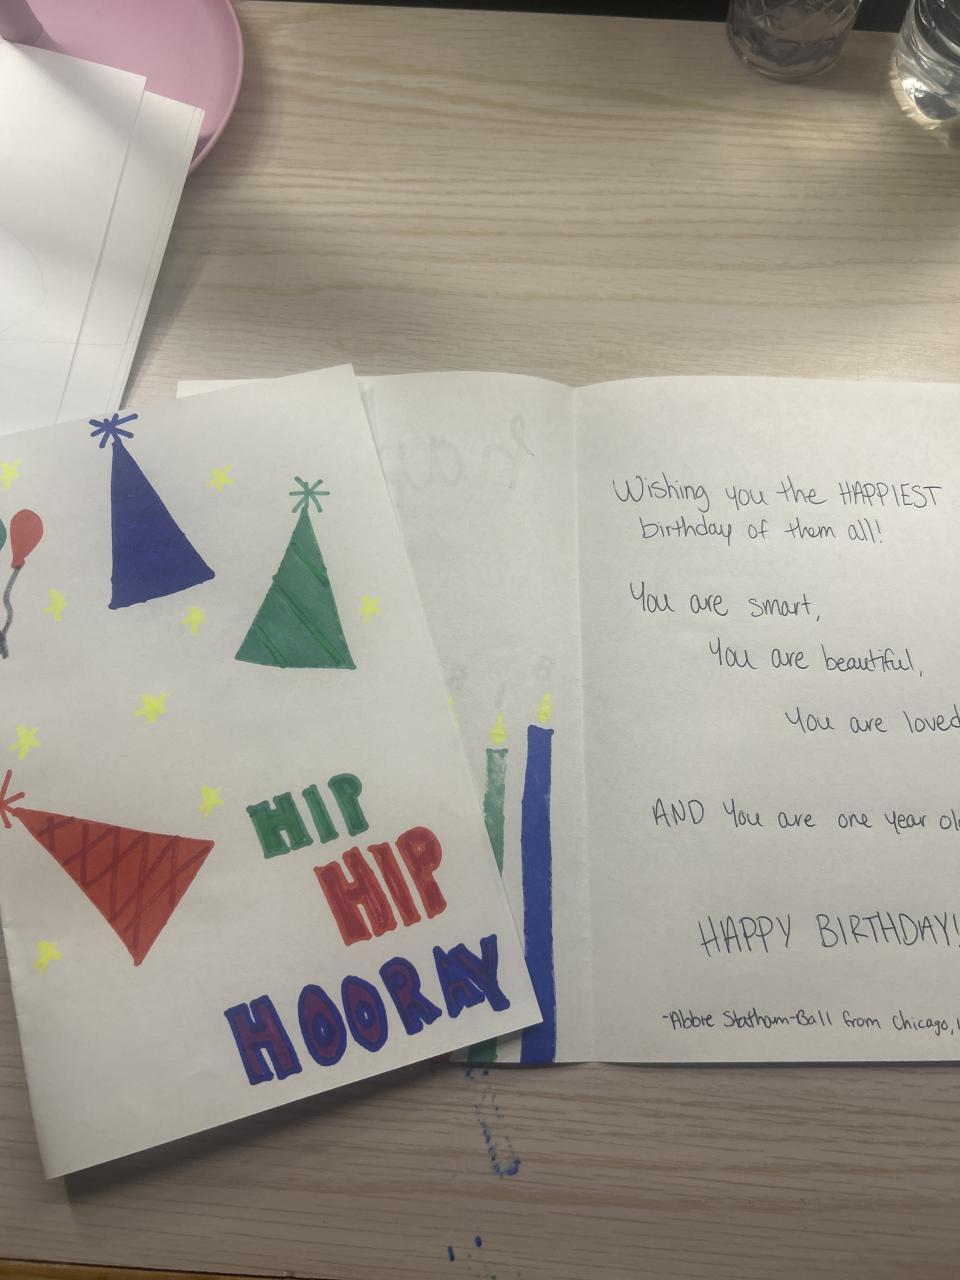 HIP
HIP
HOORAY
Wishing you the HAPPIEST
birthday of them all!
You are smart,
You are beautiful,
You are loved
AND You are one year old
HAPPY BIRTHDAY!
-Abbie Statham-Ball from Chicago,